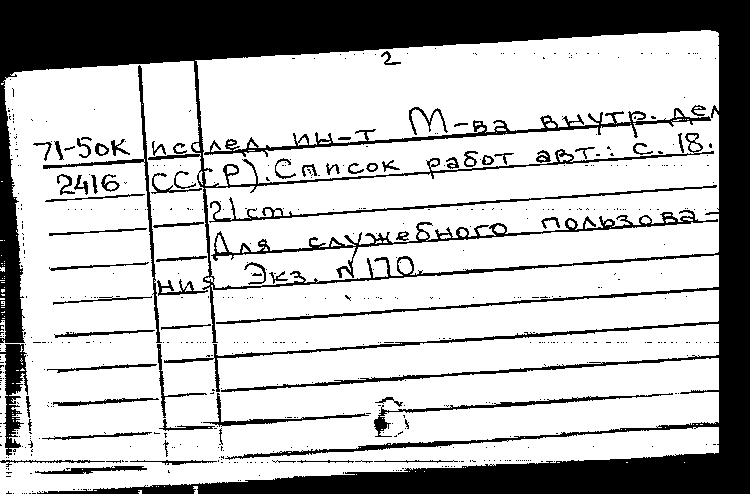 2
71-5ок исслед. ин-т М-ва внутр. дел
2416 СССР). Список работ авт.: с. 18.
21 ст.
Для служебного пользова-
ния. Экз. №170.